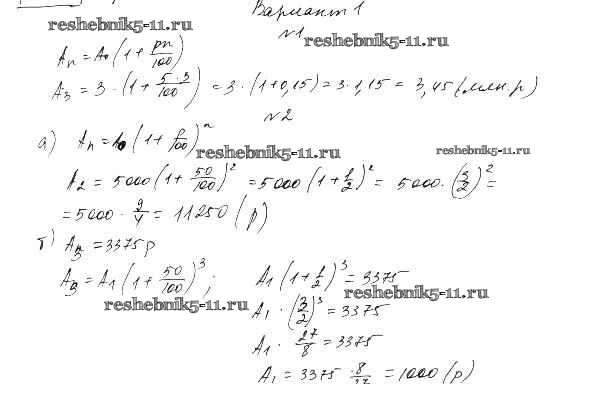 Вариант 1
reshebnik5-11.ru
№1
reshebnik5-11.ru
Aₙ = A₀ (1 + pn/100)
A₃ = 3 · (1 + 5·3/100) = 3 · (1+0,15) = 3 · 1,15 = 3,45 (млн. р)
№2
а) Aₙ = A₀ (1 + p/100)ⁿ
reshebnik5-11.ru
reshebnik5-11.ru
A₂ = 5000 (1 + 50/100)² = 5000 (1 + 1/2)² = 5000 · (3/2)² =
= 5000 · 9/4 = 11250 (р)
б) A₃ = 3375 р
A₃ = A₁ (1 + 50/100)³ ; A₁ (1 + 1/2)³ = 3375
reshebnik5-11.ru
reshebnik5-11.ru
A₁ · (3/2)³ = 3375
A₁ · 27/8 = 3375
A₁ = 3375 · 8/27 = 1000 (р)